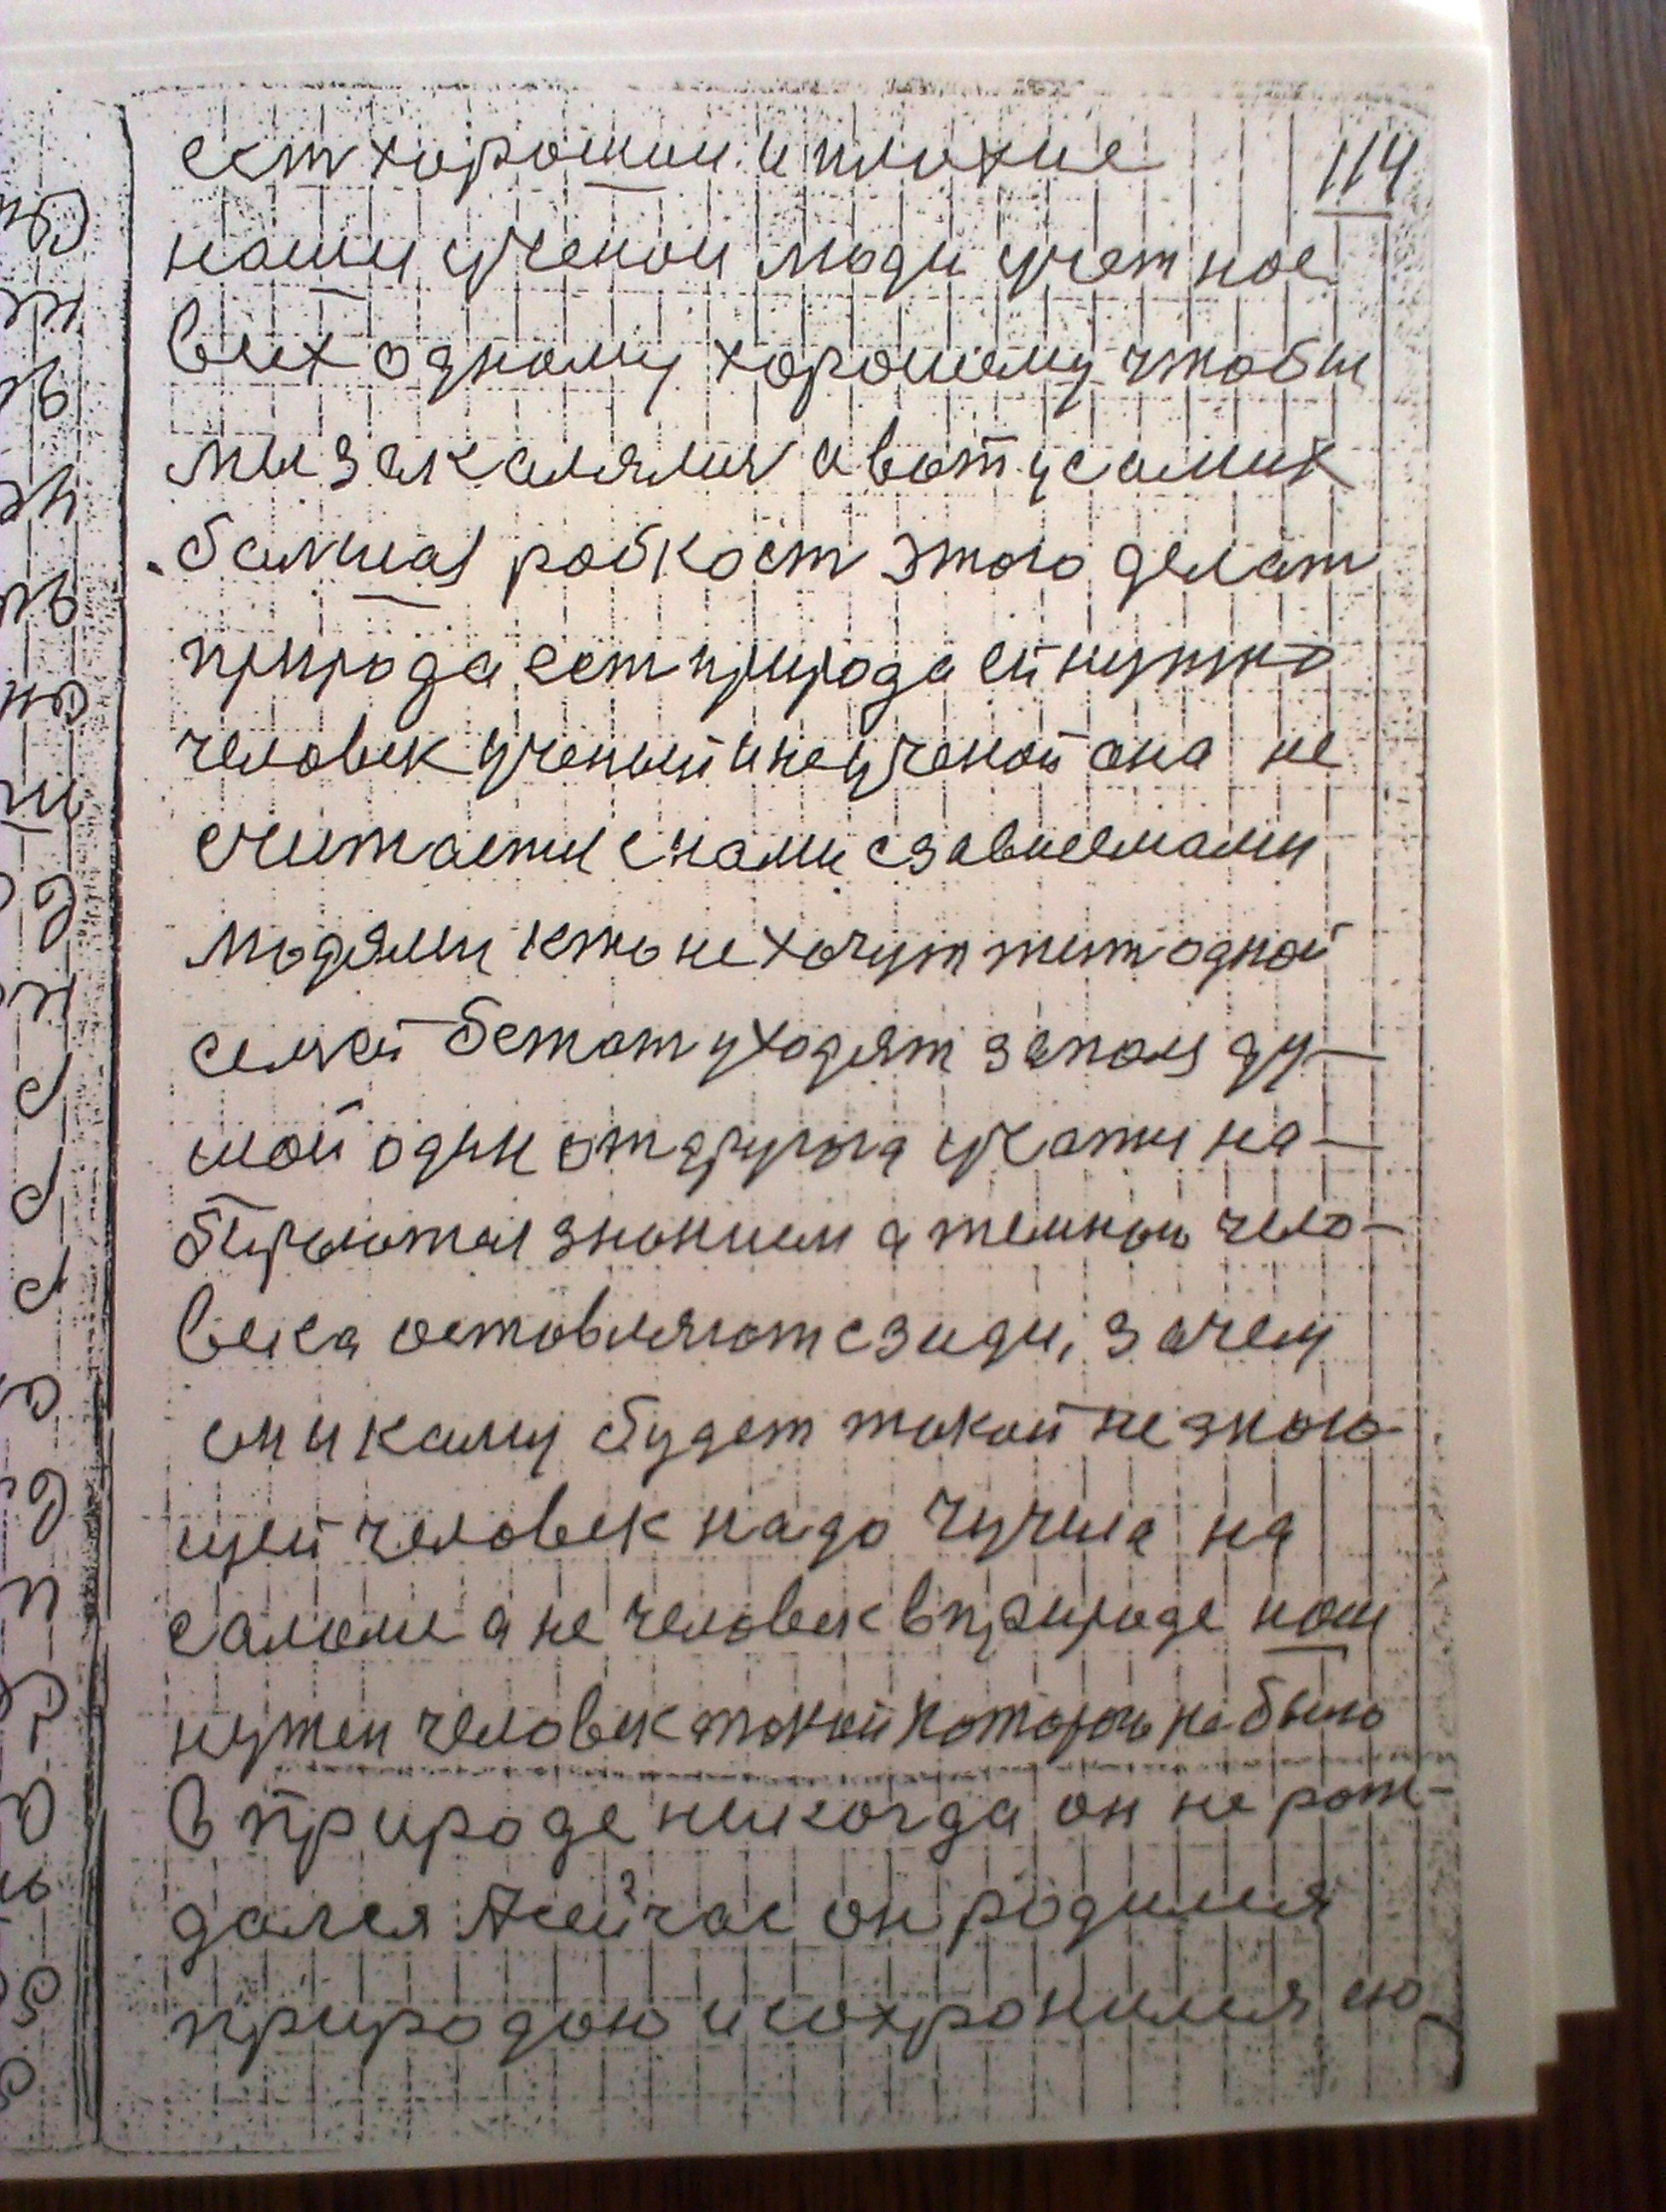 114
ест хорошии и плохие
наши ученои люди учет ное
всех одному хорошему чтобы
мы закалялис а вот усамих
балшая робкост этого делат
природа ест природа ей нужно
человек ученый и не ученой она не
считаетця с нами с зависемами
людями кто не хочут жит одной
семей бежат уходят заполя ду-
шой один от другога учатця на-
бираются знанием а темного чело-
века оставляют сзади, зачем
он и каму будет такой не знаю-
щей человек надо чучила на
самоме а не человек в природе наш
нужен человек такой которого не было
в природе никогда он не рож-
дался А сейчас он родился
природою и сохранился ею